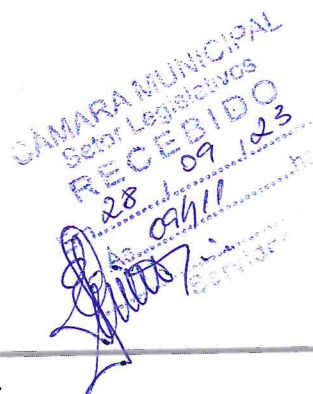 CÂMARA MUNICIPAL
Setor Legislativos
RECEBIDO
28 / 09 / 23
Às 09h11 h
Servidor